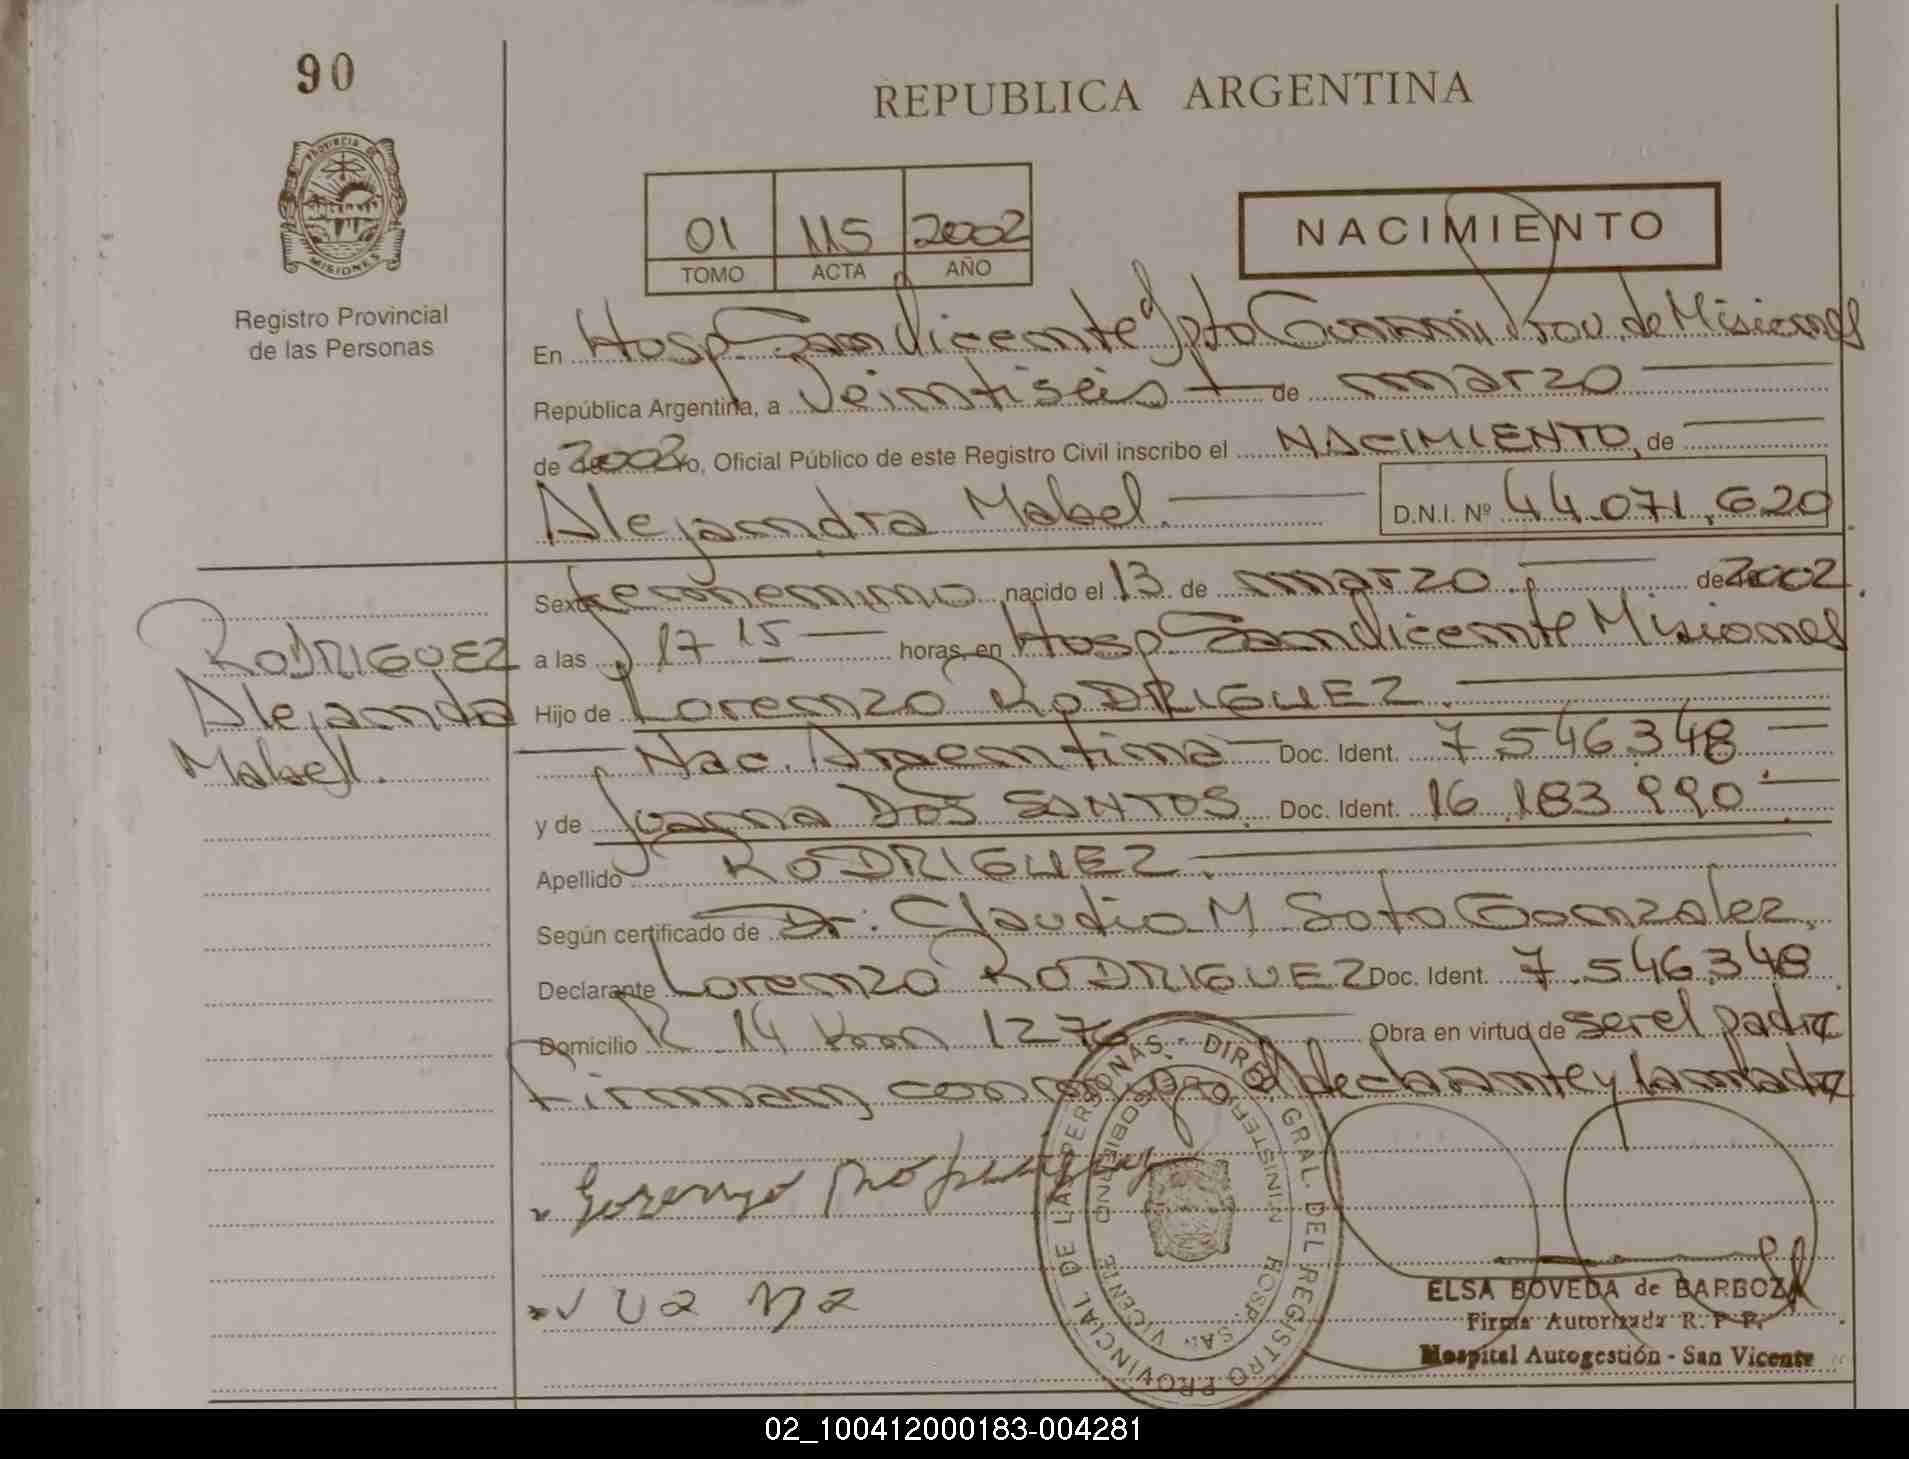 90
REPUBLICA ARGENTINA
PROVINCIA DE
MISIONES
Registro Provincial
de las Personas
01 115 2002
TOMO ACTA AÑO
NACIMIENTO
En Hosp San Vicente Dpto Guarani Prov. de Misiones
República Argentina, a Veintiseis de marzo
de 2002 yo, Oficial Público de este Registro Civil inscribo el NACIMIENTO, de
Alejandra Mabel. D.N.I. Nº 44.071.620
Sexo femenino nacido el 13 de marzo de 2002.
RODRIGUEZ
Alejandra
Mabel.
a las 17 15 horas, en Hosp San Vicente Misiones
Hijo de Lorenzo RODRIGUEZ.
Nac. Argentina Doc. Ident. 7.546.348
y de Juana DOS SANTOS. Doc. Ident. 16.183.990
Apellido RODRIGUEZ.
Según certificado de Dr. Claudio M Soto Gonzalez.
Declarante Lorenzo RODRIGUEZ Doc. Ident. 7.546.348
Domicilio R 14 Km 1276 Obra en virtud de ser el padre
Firman conmigo el declarante y la madre
DIREC. GRAL. DEL REGISTRO PROVINCIAL DE LAS PERSONAS
MINISTERIO GOBIERNO
HOSP. SAN VICENTE
ELSA BOVEDA de BARBOZA
Firma Autorizada R. P. P.
Hospital Autogestión - San Vicente
02_100412000183-004281